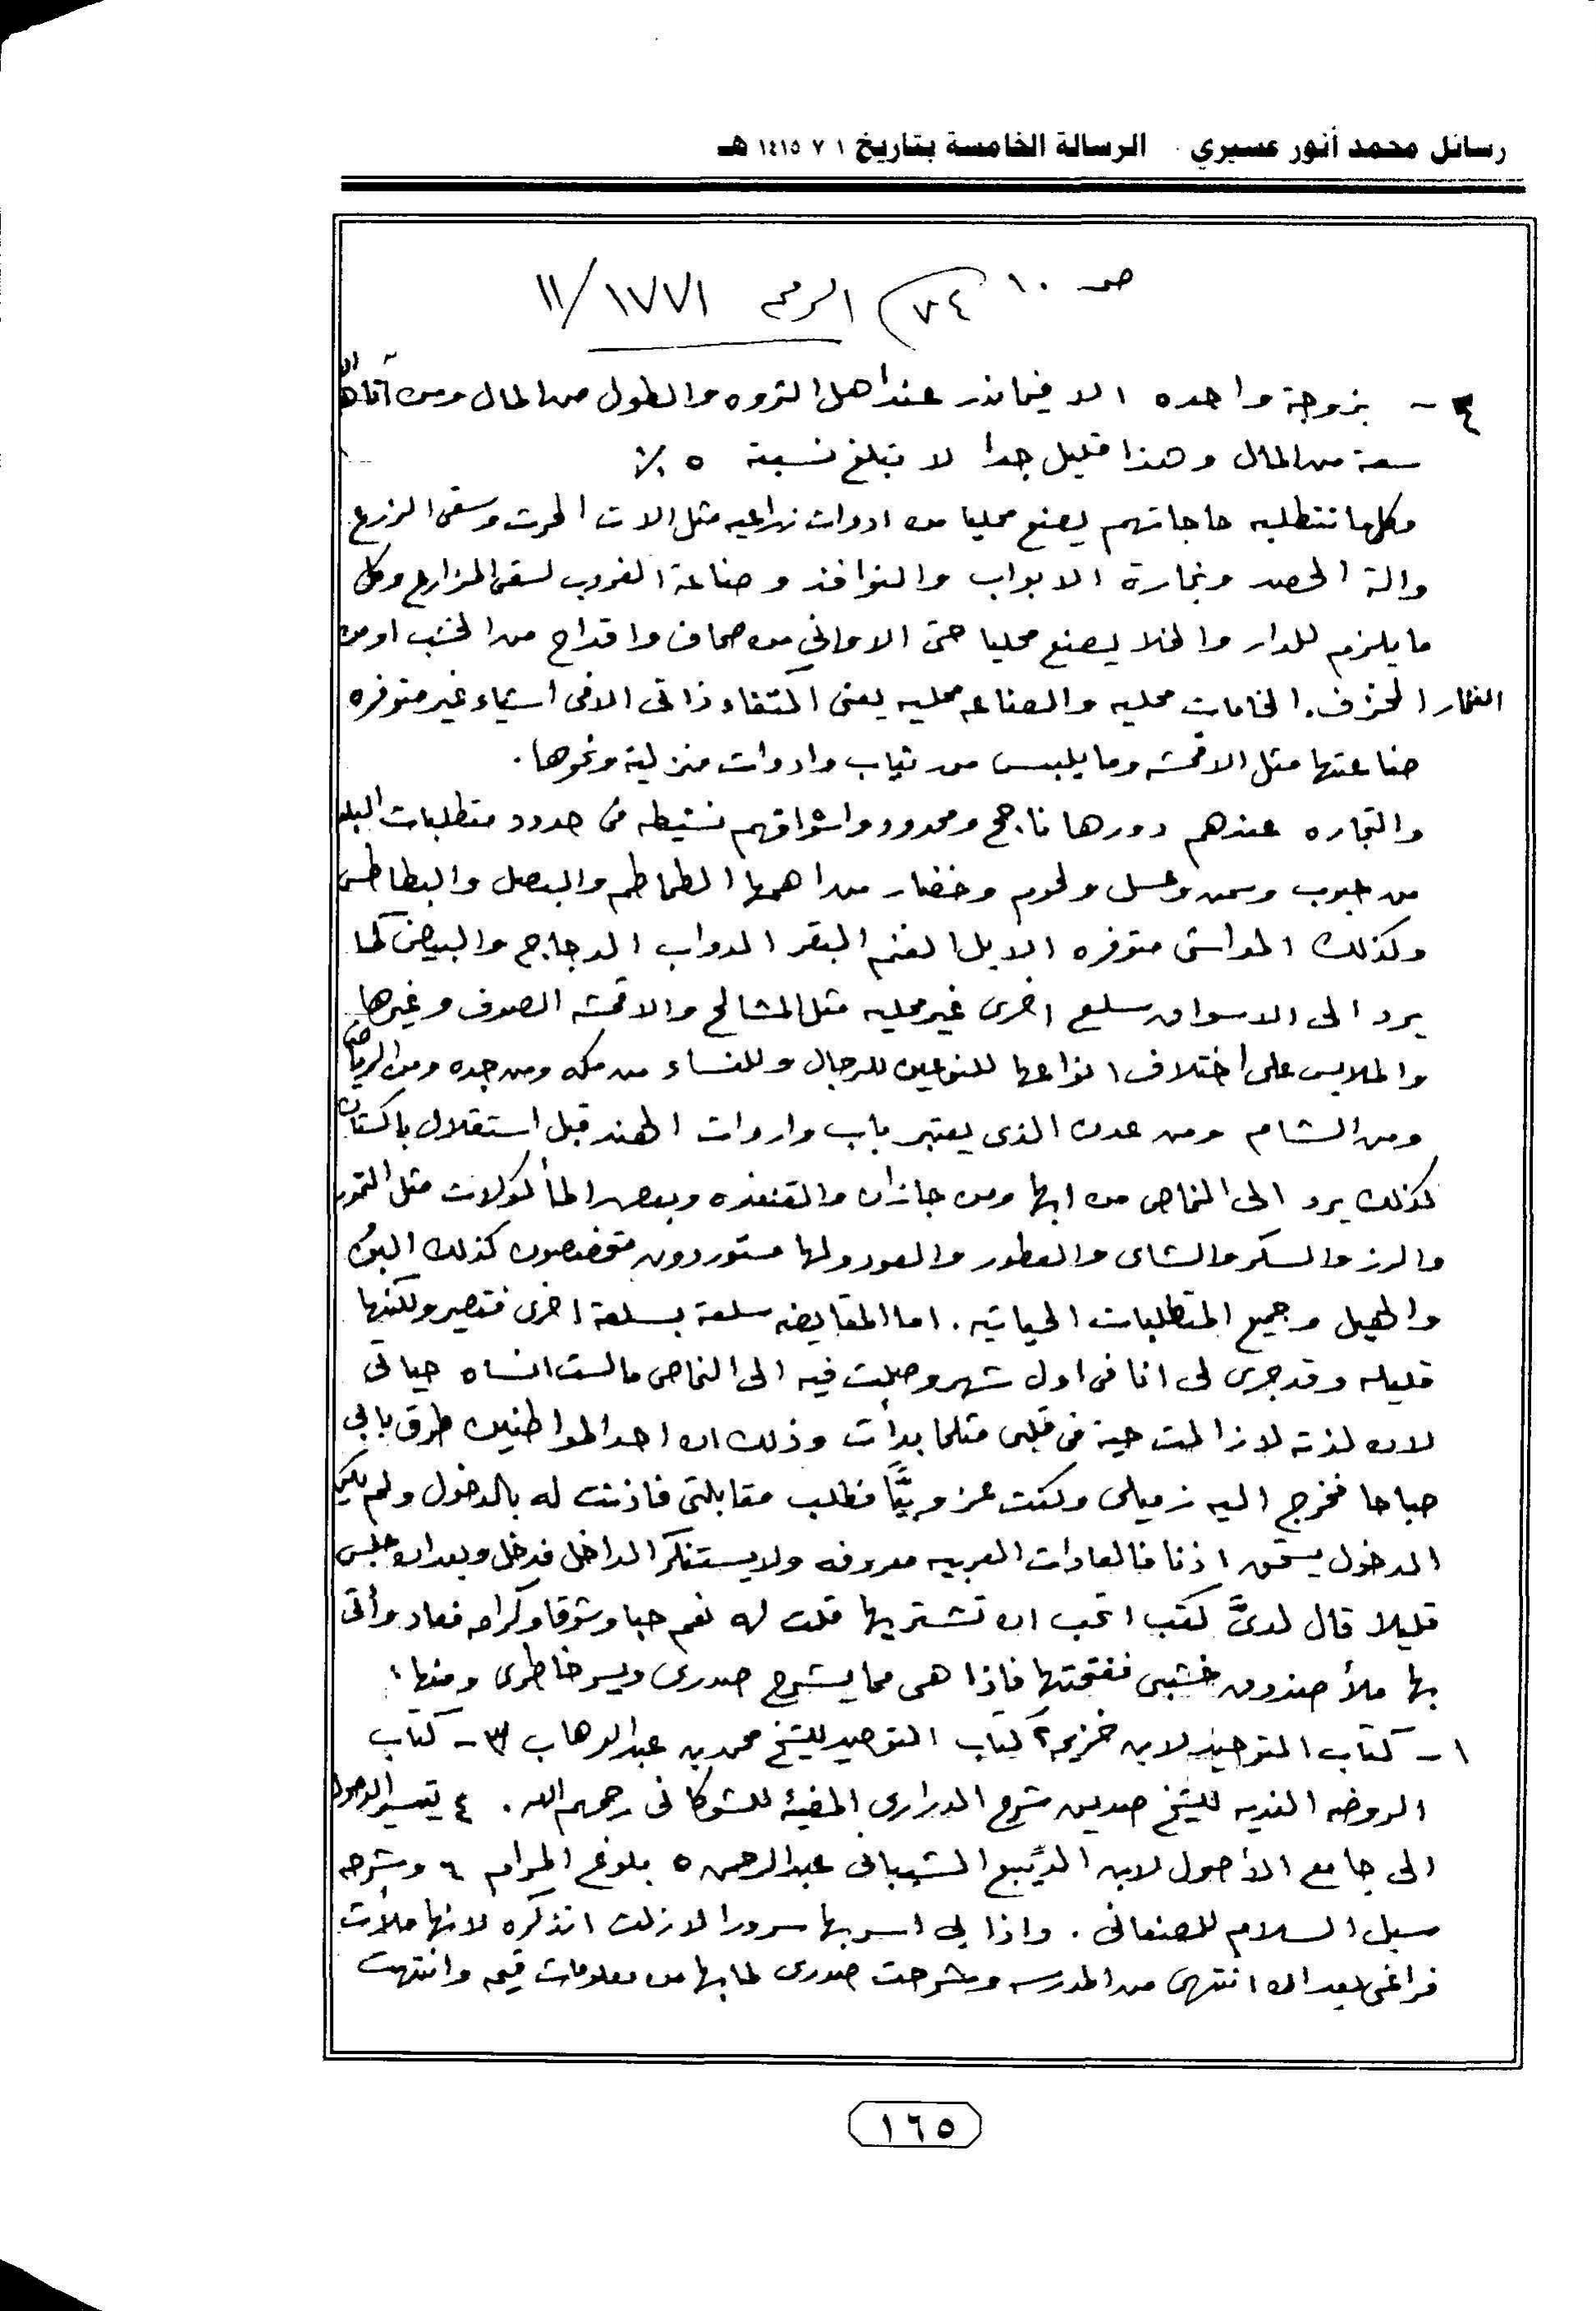 رسائل محمد أنور عسيري    الرسالة الخامسة بتاريخ ١ ٧ ١٤١٥ هـ
صـ ١٠ (٧٤ الرقم ١٧٧١/١١
٣ - بزوجة واحده الا فيما ندر عند اهل الثروه والطول من المال ومن آتاه الله
سعة من المال وهذا قليل جدا لا تبلغ نسبته ٥ ٪
وكلما تتطلبه حاجاتهم يصنع محليا من ادوات زراعيه مثل الات الحرث وسقى الزرع
والة الحصد ونجارة الابواب والنوافذ وصناعة الغروب لسقى المزارع وكل
ما يلزم للدار والخلا يصنع محليا حتى الاواني من صحاف واقداح من الخشب او من
الفخار الخزف. الخامات محليه والصناعه محليه يعنى اكتفاء ذاتى الا فى اشياء غير متوفره
صناعتها مثل الاقمشه وما يلبس من ثياب وادوات منزلية ونحوها.
والتجاره عندهم دورها ناجح ومحدود واسواقهم نشيطه فى حدود متطلبات البلد
من حبوب وسمن وعسل ولحوم وخضار من اهمها الطماطم والبصل والبطاطس
وكذلك المواشى متوفره الابل الغنم البقر الدواب الدجاج والبيض كما
يرد الى الاسواق سلع اخرى غير محليه مثل المشالح والاقمشه الصوف وغيرها
والملابس على اختلاف انواعها للنوعين للرجال وللنساء من مكه ومن جده ومن الرياض
ومن الشام ومن عدن الذى يعتبر باب واردات الهند قبل استقلال باكستان
كذلك يرد الى النماص من ابها ومن جازان والقنفذه وبعض المأكولات مثل التمور
والرز والسكر والشاى والعطور والعود ولها مستوردون متخصصون كذلك البن
والهيل وجميع المتطلبات الحياتيه. اما المقايضه سلعة بسلعة اخرى فتصير ولكنها
قليله وقد جرى لى انا فى اول شهر وصلت فيه الى النماص مالست انساه حياتى
لان لذته لا زالت حية فى قلبى مثلما بدأت وذلك ان احد المواطنين طرق بابى
صباحا فخرج اليه زميلى وكنت عزوبيًّا فطلب مقابلتى فاذنت له بالدخول ولم يكن
الدخول يستحق اذنا فالعادات العربيه معروفه ولا يستنكر الداخل فدخل وبعد ان جلس
قليلا قال لدىَّ كتب اتحب ان تشتريها قلت له نعم حبا وشوقا وكرامه فعاد وأتى
بها ملأ صندوق خشبى ففتحتها فاذا هى مما يشرح صدرى ويسر خاطرى ومنها:
١ - كتاب التوحيد لابن خزيمه ٢ كتاب التوحيد للشيخ محمد بن عبدالوهاب ٣ - كتاب
الروضه النديه للشيخ صديق شرح الدرارى المضيئة للشوكانى رحمهم الله. ٤ تيسير الوصول
الى جامع الأصول لابن الدَّيبع الشيبانى عبدالرحمن ٥ بلوغ المرام ٦ وشرحه
سبل السلام للصنعانى. واذا بى اسر بها سرورا لازلت اتذكره لانها ملأت
فراغى بعد ان انتهى من المدرسه وشرحت صدرى لما بها من معلومات قيمه وانتهت
١٦٥